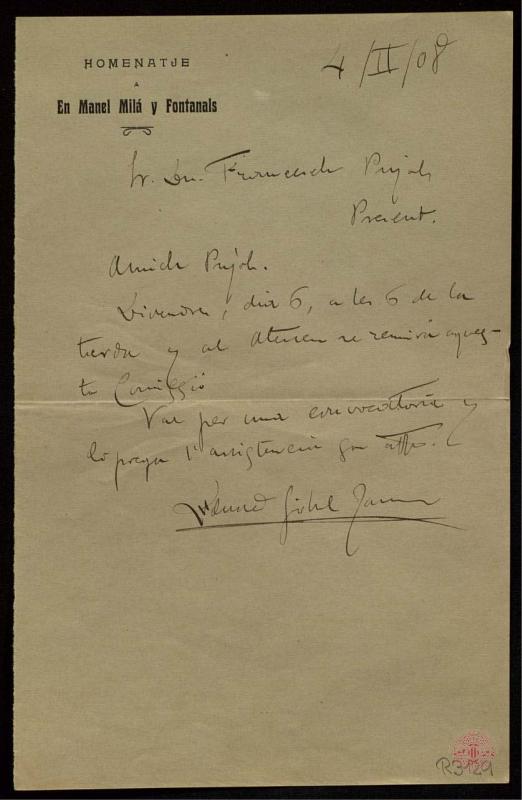 HOMENATJE
A
En Manel Milá y Fontanals
4/II/08
Sr. Dn. Francesch Pujols
Present.
Amich Pujols.
Divendres, dia 6, a les 6 de la
tarda y al Ateneu se reunirá aques-
ta Comissió
Val per una convocatoria y
lo prega l'assistencia son
R3129